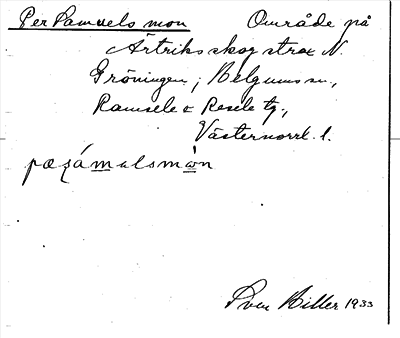 Per Samuels mon Område på
Årtriks skog strax N.
Gröningen, Belgums sn.,
Ramsele & Resele tg.,
Västernorrl. l.
pæzámulsmȯn
Sven Hiller 1933